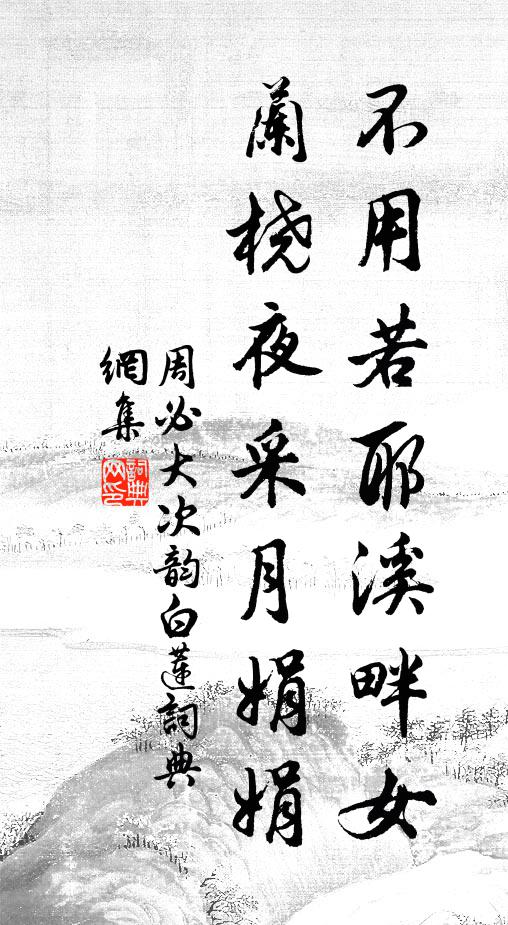 不用若耶溪畔女
蘭橈夜采月娟娟
周必大次韵白蓮詞典
網集
詞典
网印